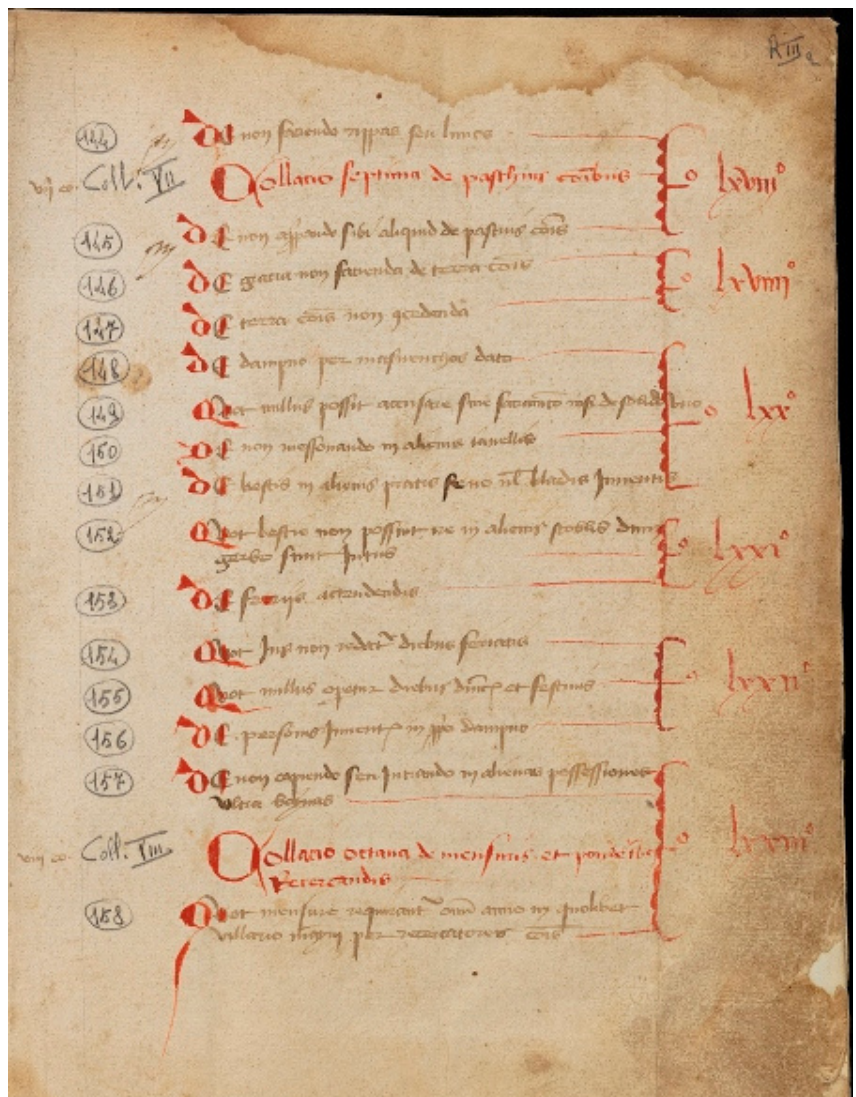 R III a
144 De non faciendo rippas seu limes
vij co. Coll. VII Collacio septima de pasthuis coibus Fo lxviiio
145 De non appando sibi aliquid de pastuis cois
146 De gacia non facienda de terra cois Fo lxviiiio
147 De terra cois non concedenda
148 De dampno per dato
149 Quot nullus possit accusare sine sacramto nisi de Fo lxxo
150 De non messonando in alienis tavellis
151 De bestiis in alienis pratis feno vel bladis Inventis
152 Quot bestie non possint ire in alienis stoblis dum Fo lxxio
gerbe sunt Intus
153 De feriis actendendis
154 Quot Jus non redatr diebus feriatis
155 Quot nullus opetur diebus dnicis et festivis Fo lxxiio
156 De personis Inventis in ppo dampno
157 De non capiendo seu Intrando in alienas possessiones
ultra
viij co. Coll. VIII Collacio octava de mensuris et ponderibus Fo lxxiiio
Recercandis
158 Quot mensure requirantr omi anno in quolibet
villario per recercatores cois